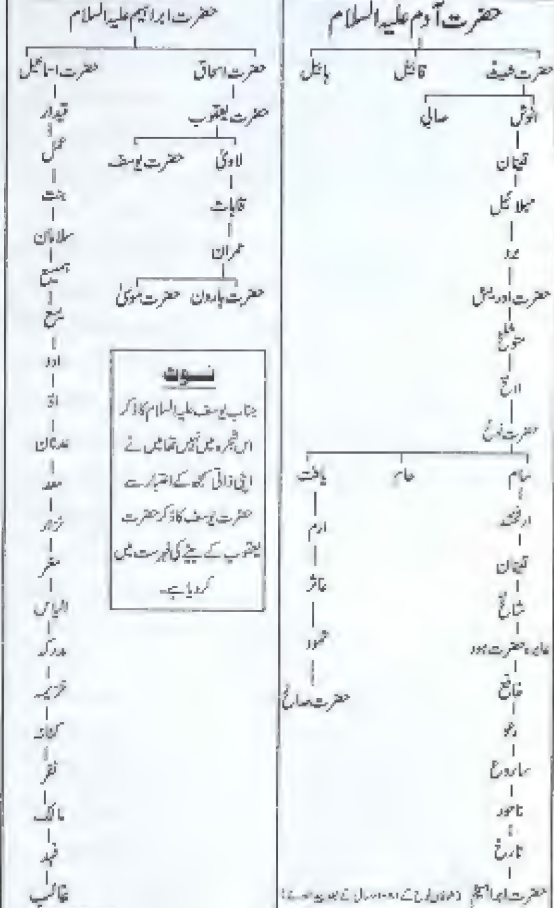 حضرت آدم علیہ السلام
حضرت شیث قابیل ہابیل
انوش صابی
قینان
مہلائیل
یرد
حضرت ادریس
متوشلخ
حضرت نوح
سام حام یافث
ارفخشد ارم
قینان عاثر
شالخ ثمود
عابر، حضرت ہود حضرت صالح
فالغ
رعو
ساروغ
ناحور
تارخ
حضرت ابراہیم
حضرت ابراہیم علیہ السلام
حضرت اسحاق حضرت اسماعیل
حضرت یعقوب
لاوی حضرت یوسف
قاہاث
عمران
حضرت ہارون حضرت موسیٰ
قیدار
حمل
نبت
سلامان
ہمیسع
یسع
ادو
اد
عدنان
معد
نزار
مضر
الیاس
مدرکہ
خزیمہ
کنانہ
نضر
مالک
فہد
غالب
نوٹ
جناب یوسف علیہ السلام کا ذکر
اس شجرہ میں نہیں تھا میں نے
اپنی ذاتی سمجھ کے اعتبار سے
حضرت یوسف کا ذکر حضرت
یعقوب کے بیٹے کی فہرست میں
کر دیا ہے۔